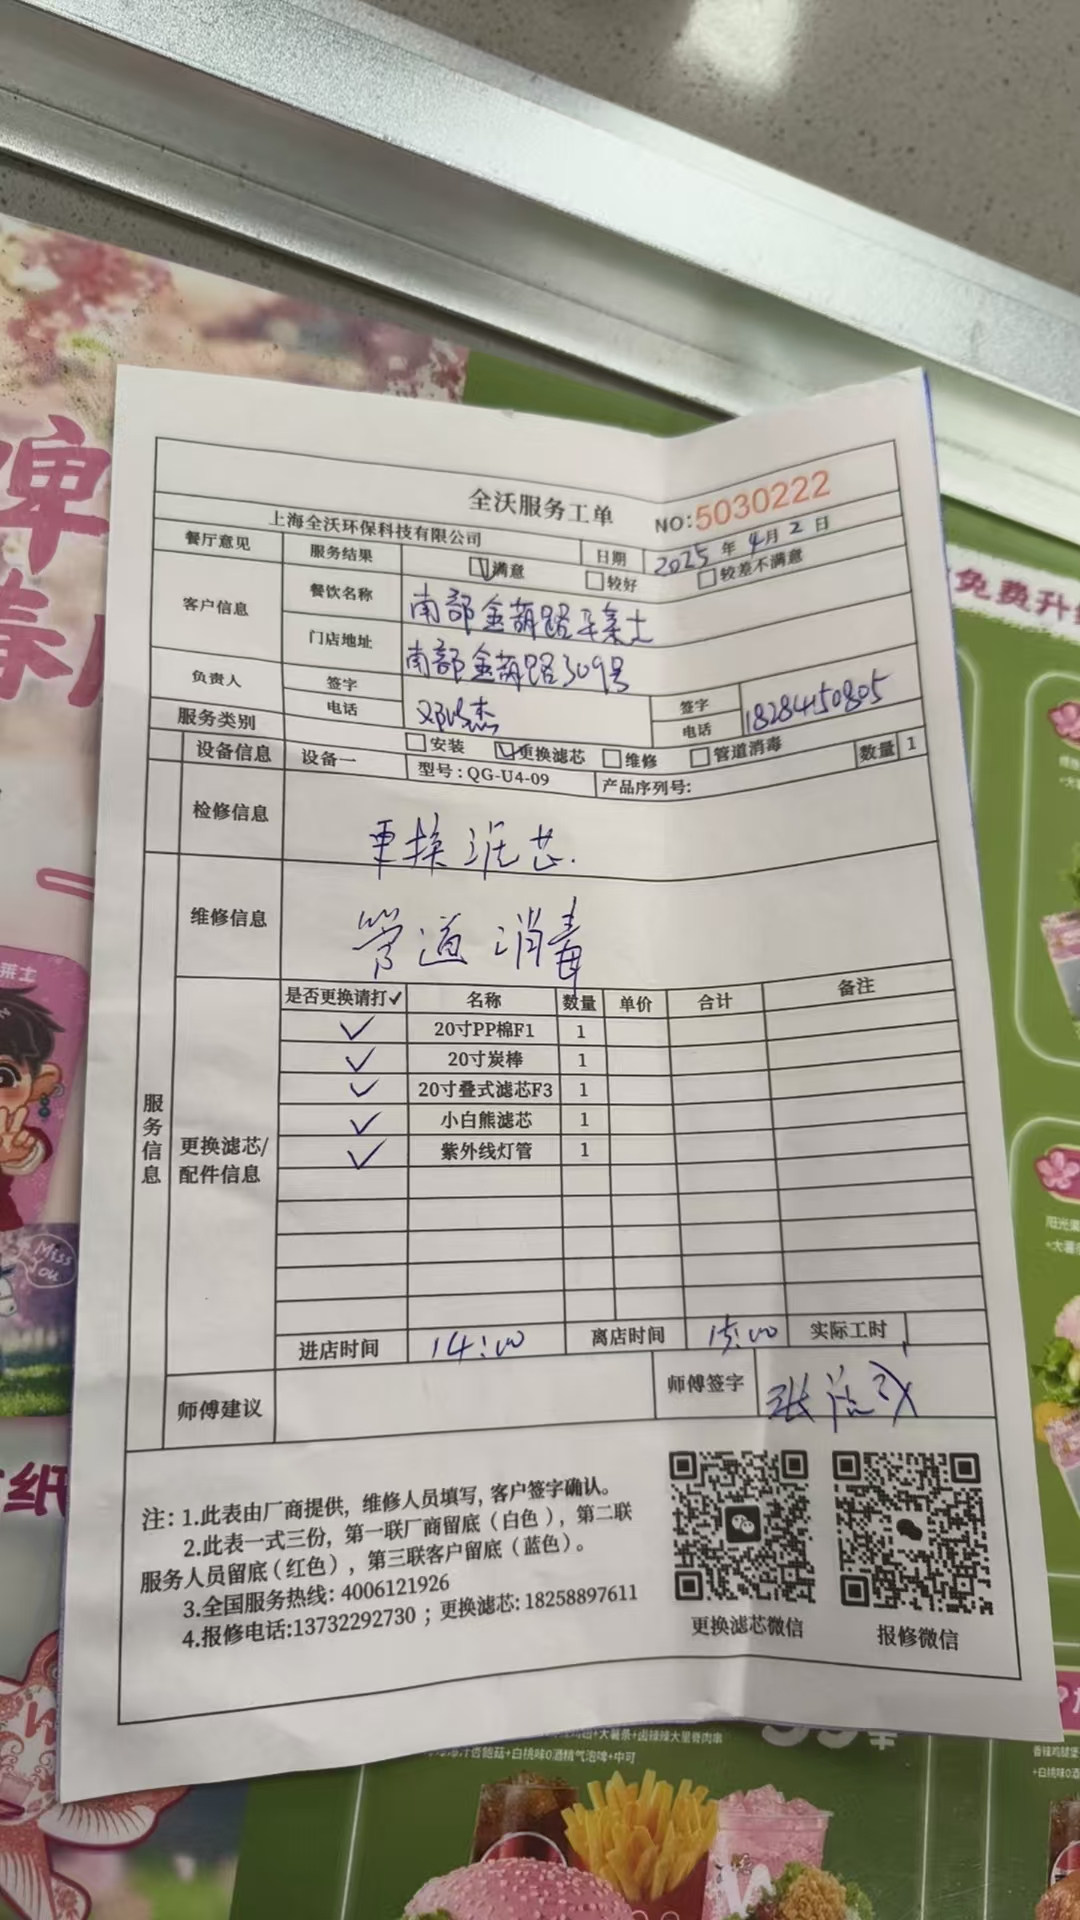 全沃服务工单
NO:5030222
上海全沃环保科技有限公司
日期
2025年4月2日
餐厅意见
服务结果
满意
较好
较差不满意
客户信息
餐饮名称
南部金葫路华莱士
门店地址
南部金葫路309号
负责人
签字
签字
电话
电话
18284150805
服务类别
安装
更换滤芯
维修
管道消毒
设备信息
设备一
型号:QG-U4-09
产品序列号:
数量
1
检修信息
更换滤芯.
维修信息
管道消毒
服务信息
更换滤芯/
配件信息
是否更换请打✓ 名称 数量 单价 合计 备注
✓ 20寸PP棉F1 1
✓ 20寸炭棒 1
✓ 20寸叠式滤芯F3 1
✓ 小白熊滤芯 1
✓ 紫外线灯管 1
进店时间 14:00 离店时间 15:00 实际工时
师傅建议
师傅签字
注: 1.此表由厂商提供, 维修人员填写, 客户签字确认。
2.此表一式三份, 第一联厂商留底(白色), 第二联
服务人员留底(红色), 第三联客户留底(蓝色)。
3.全国服务热线: 4006121926
4.报修电话:13732292730 ; 更换滤芯: 18258897611
更换滤芯微信
报修微信
免费升
莱士
Miss
You
春
纸